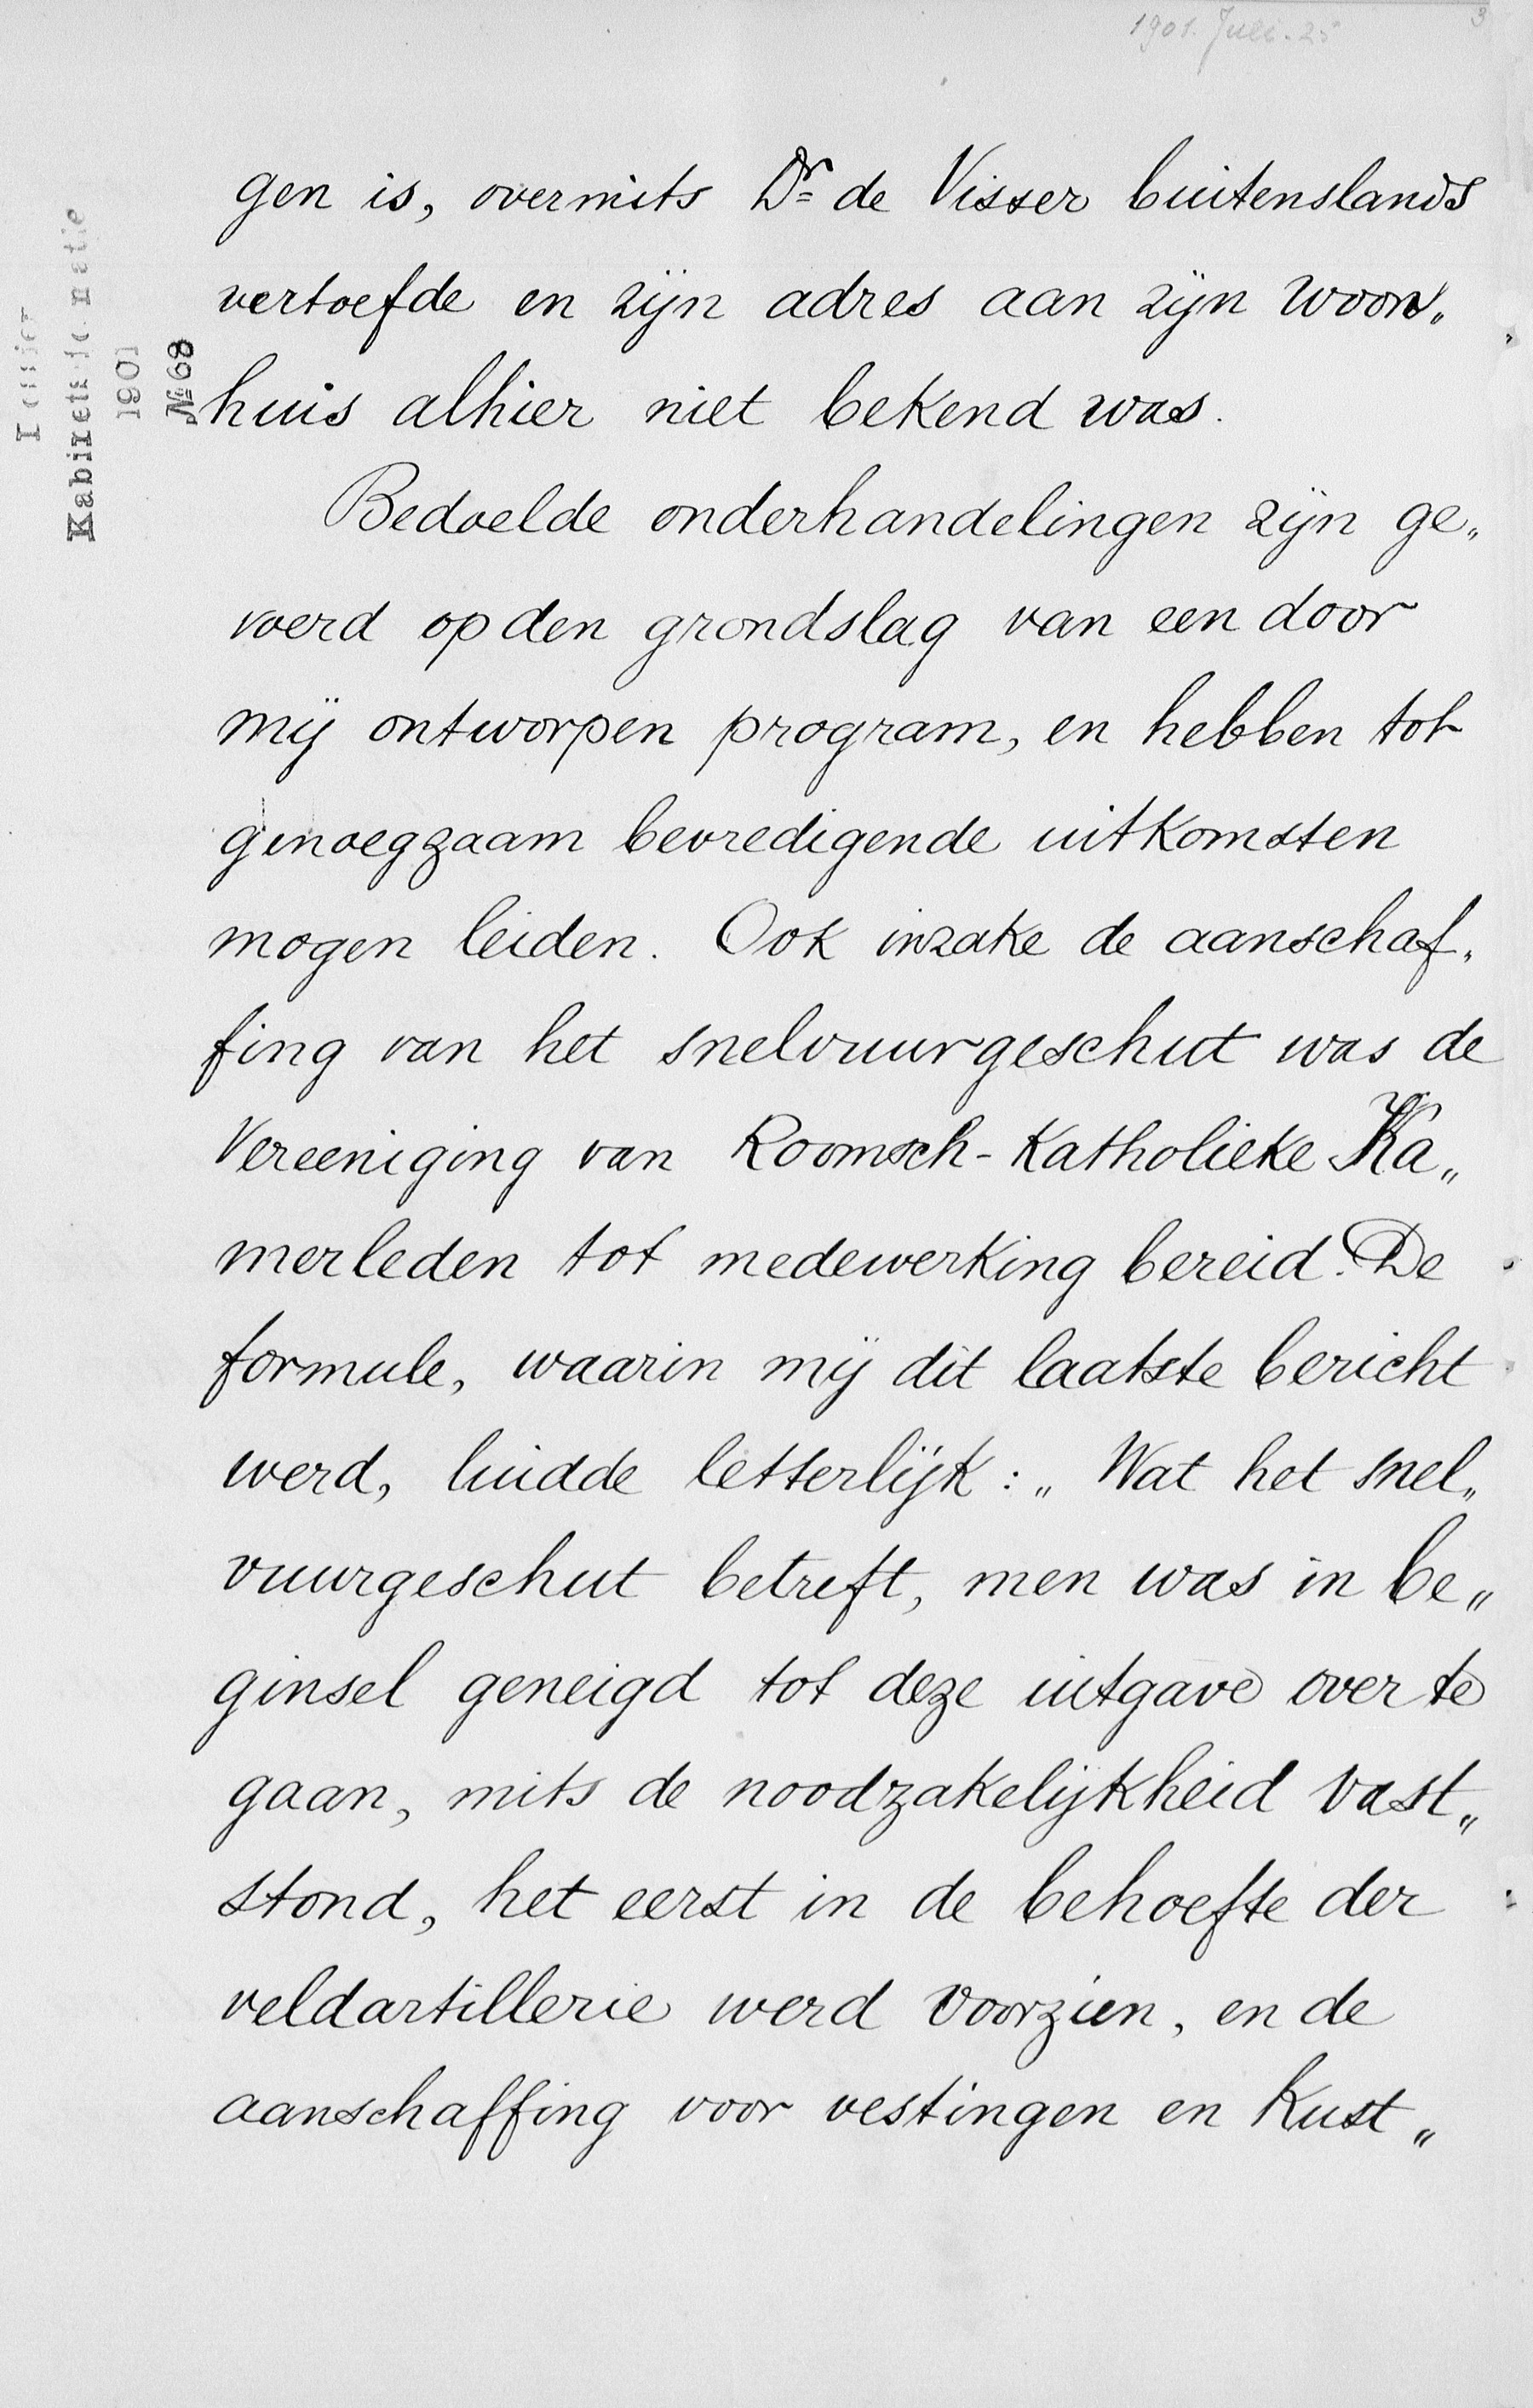 1901. Juli. 25
3
gen is, overmits Dr= de Visser buitenslands
vertoefde en zijn adres aan zijn woon„
huis alhier niet bekend was.
Bedoelde onderhandelingen zijn ge„
voerd op den grondslag van een door
mij ontworpen program, en hebben tot
genoegzaam bevredigende uitkomsten
mogen leiden. Ook inzake de aanschaf„
fing van het snelvuurgeschut was de
Vereeniging van Roomsch-Katholieke Ka„
merleden tot medewerking bereid. De
formule, waarin mij dit laatste bericht
werd, luidde letterlijk: „Wat het snel„
vuurgeschut betreft, men was in be„
ginsel geneigd tot deze uitgave over te
gaan, mits de noodzakelijkheid vast„
stond, het eerst in de behoefte der
veldartillerie werd voorzien, en de
aanschaffing voor vestingen en Kust„
1901
№ 68